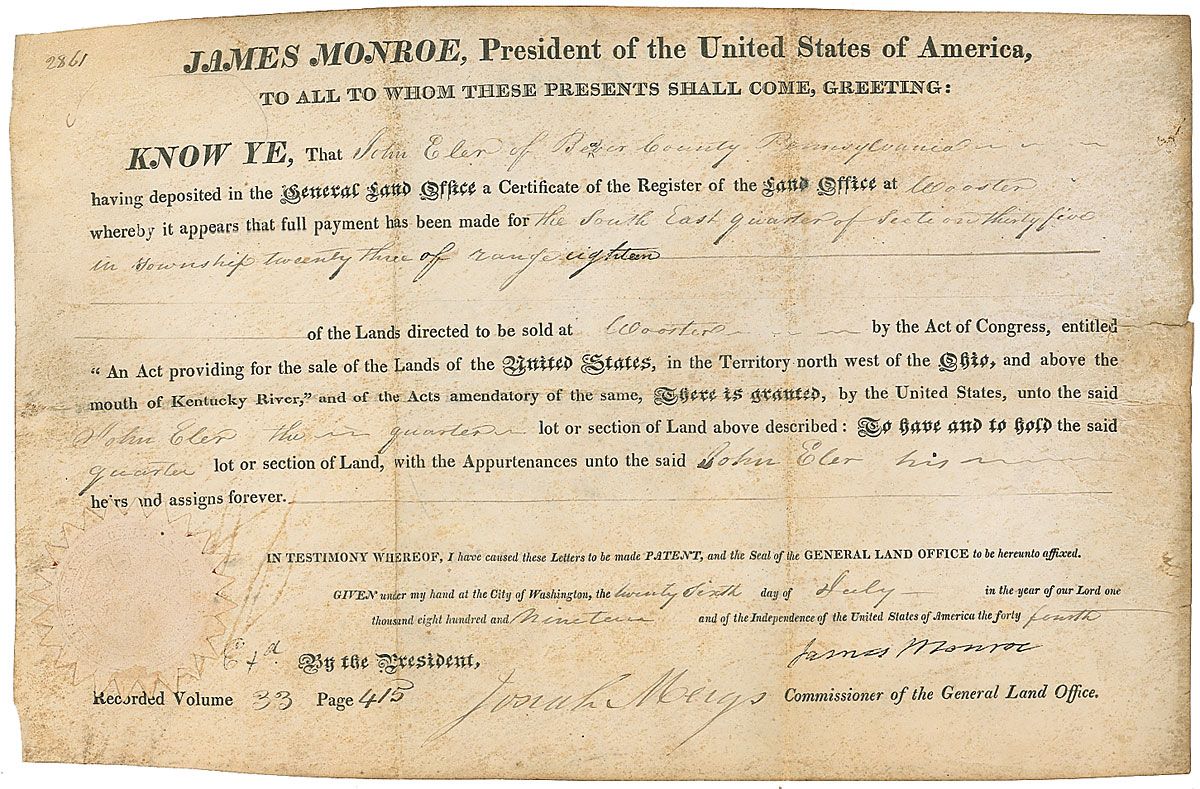 2861
JAMES MONROE, President of the United States of America,
TO ALL TO WHOM THESE PRESENTS SHALL COME, GREETING:
KNOW YE, That John Eler of County Pennsylvania
having deposited in the General Land Office a Certificate of the Register of the Land Office at Wooster
whereby it appears that full payment has been made for the South East quarter of Section thirty five
in Township twenty three of range eighteen
of the Lands directed to be sold at Wooster by the Act of Congress, entitled
"An Act providing for the sale of the Lands of the United States, in the Territory north west of the Ohio, and above the
mouth of Kentucky River," and of the Acts amendatory of the same, There is granted, by the United States, unto the said
John Eler the quarter lot or section of Land above described: To have and to hold the said
quarter lot or section of Land, with the Appurtenances unto the said John Eler his
heirs and assigns forever.
IN TESTIMONY WHEREOF, I have caused these Letters to be made PATENT, and the Seal of the GENERAL LAND OFFICE to be hereunto affixed.
GIVEN under my hand at the City of Washington, the twenty sixth day of July in the year of our Lord one
thousand eight hundred and nineteen and of the Independence of the United States of America the forty fourth
James Monroe
By the President,
Recorded Volume 33 Page 415 Josiah Meigs Commissioner of the General Land Office.